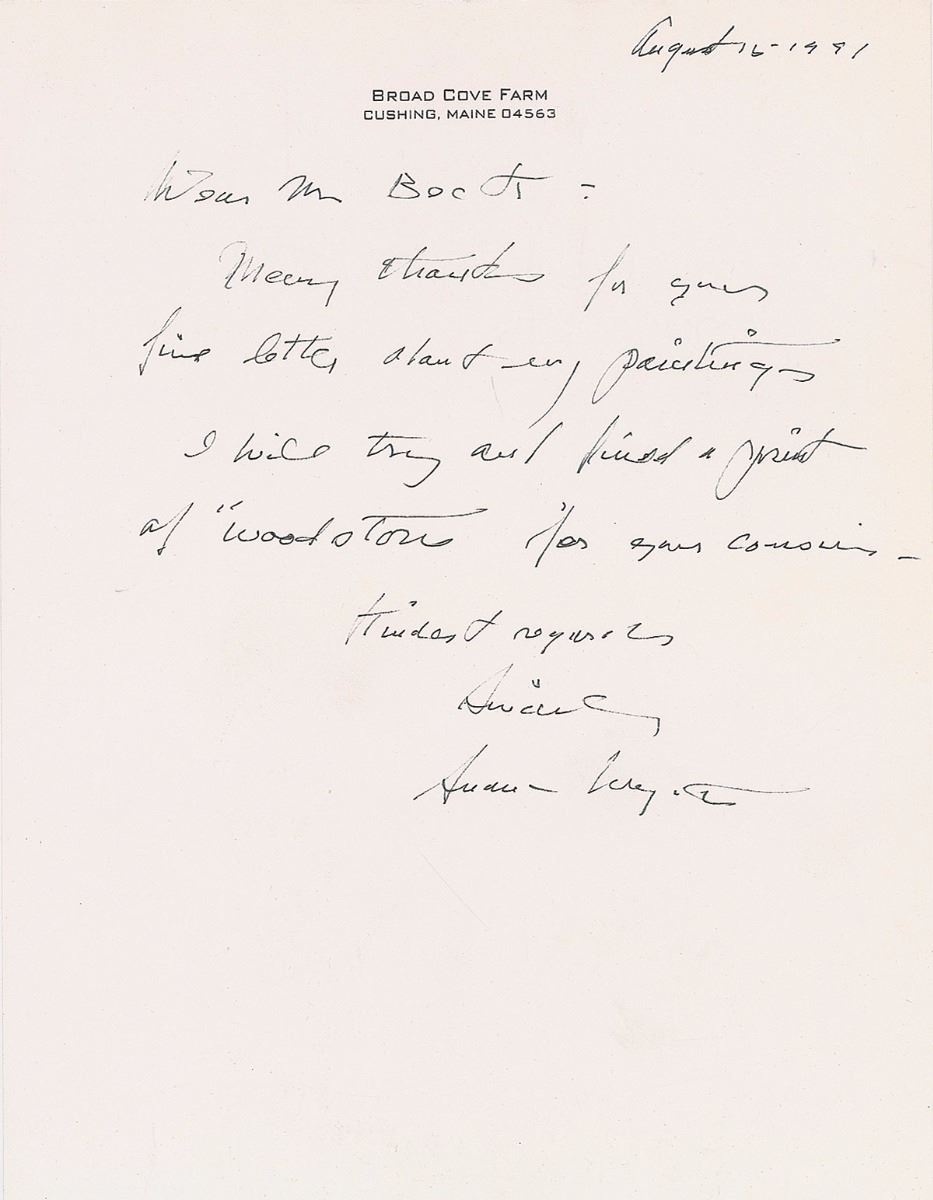 August 16 - 1991
BROAD COVE FARM
CUSHING, MAINE 04563
Dear Mr
Many thanks for your
fine letter about my paintings
I will try and find a print
of "Woodstove" for your cousin -
Kindest regards
Sincerely
Andrew Wyeth